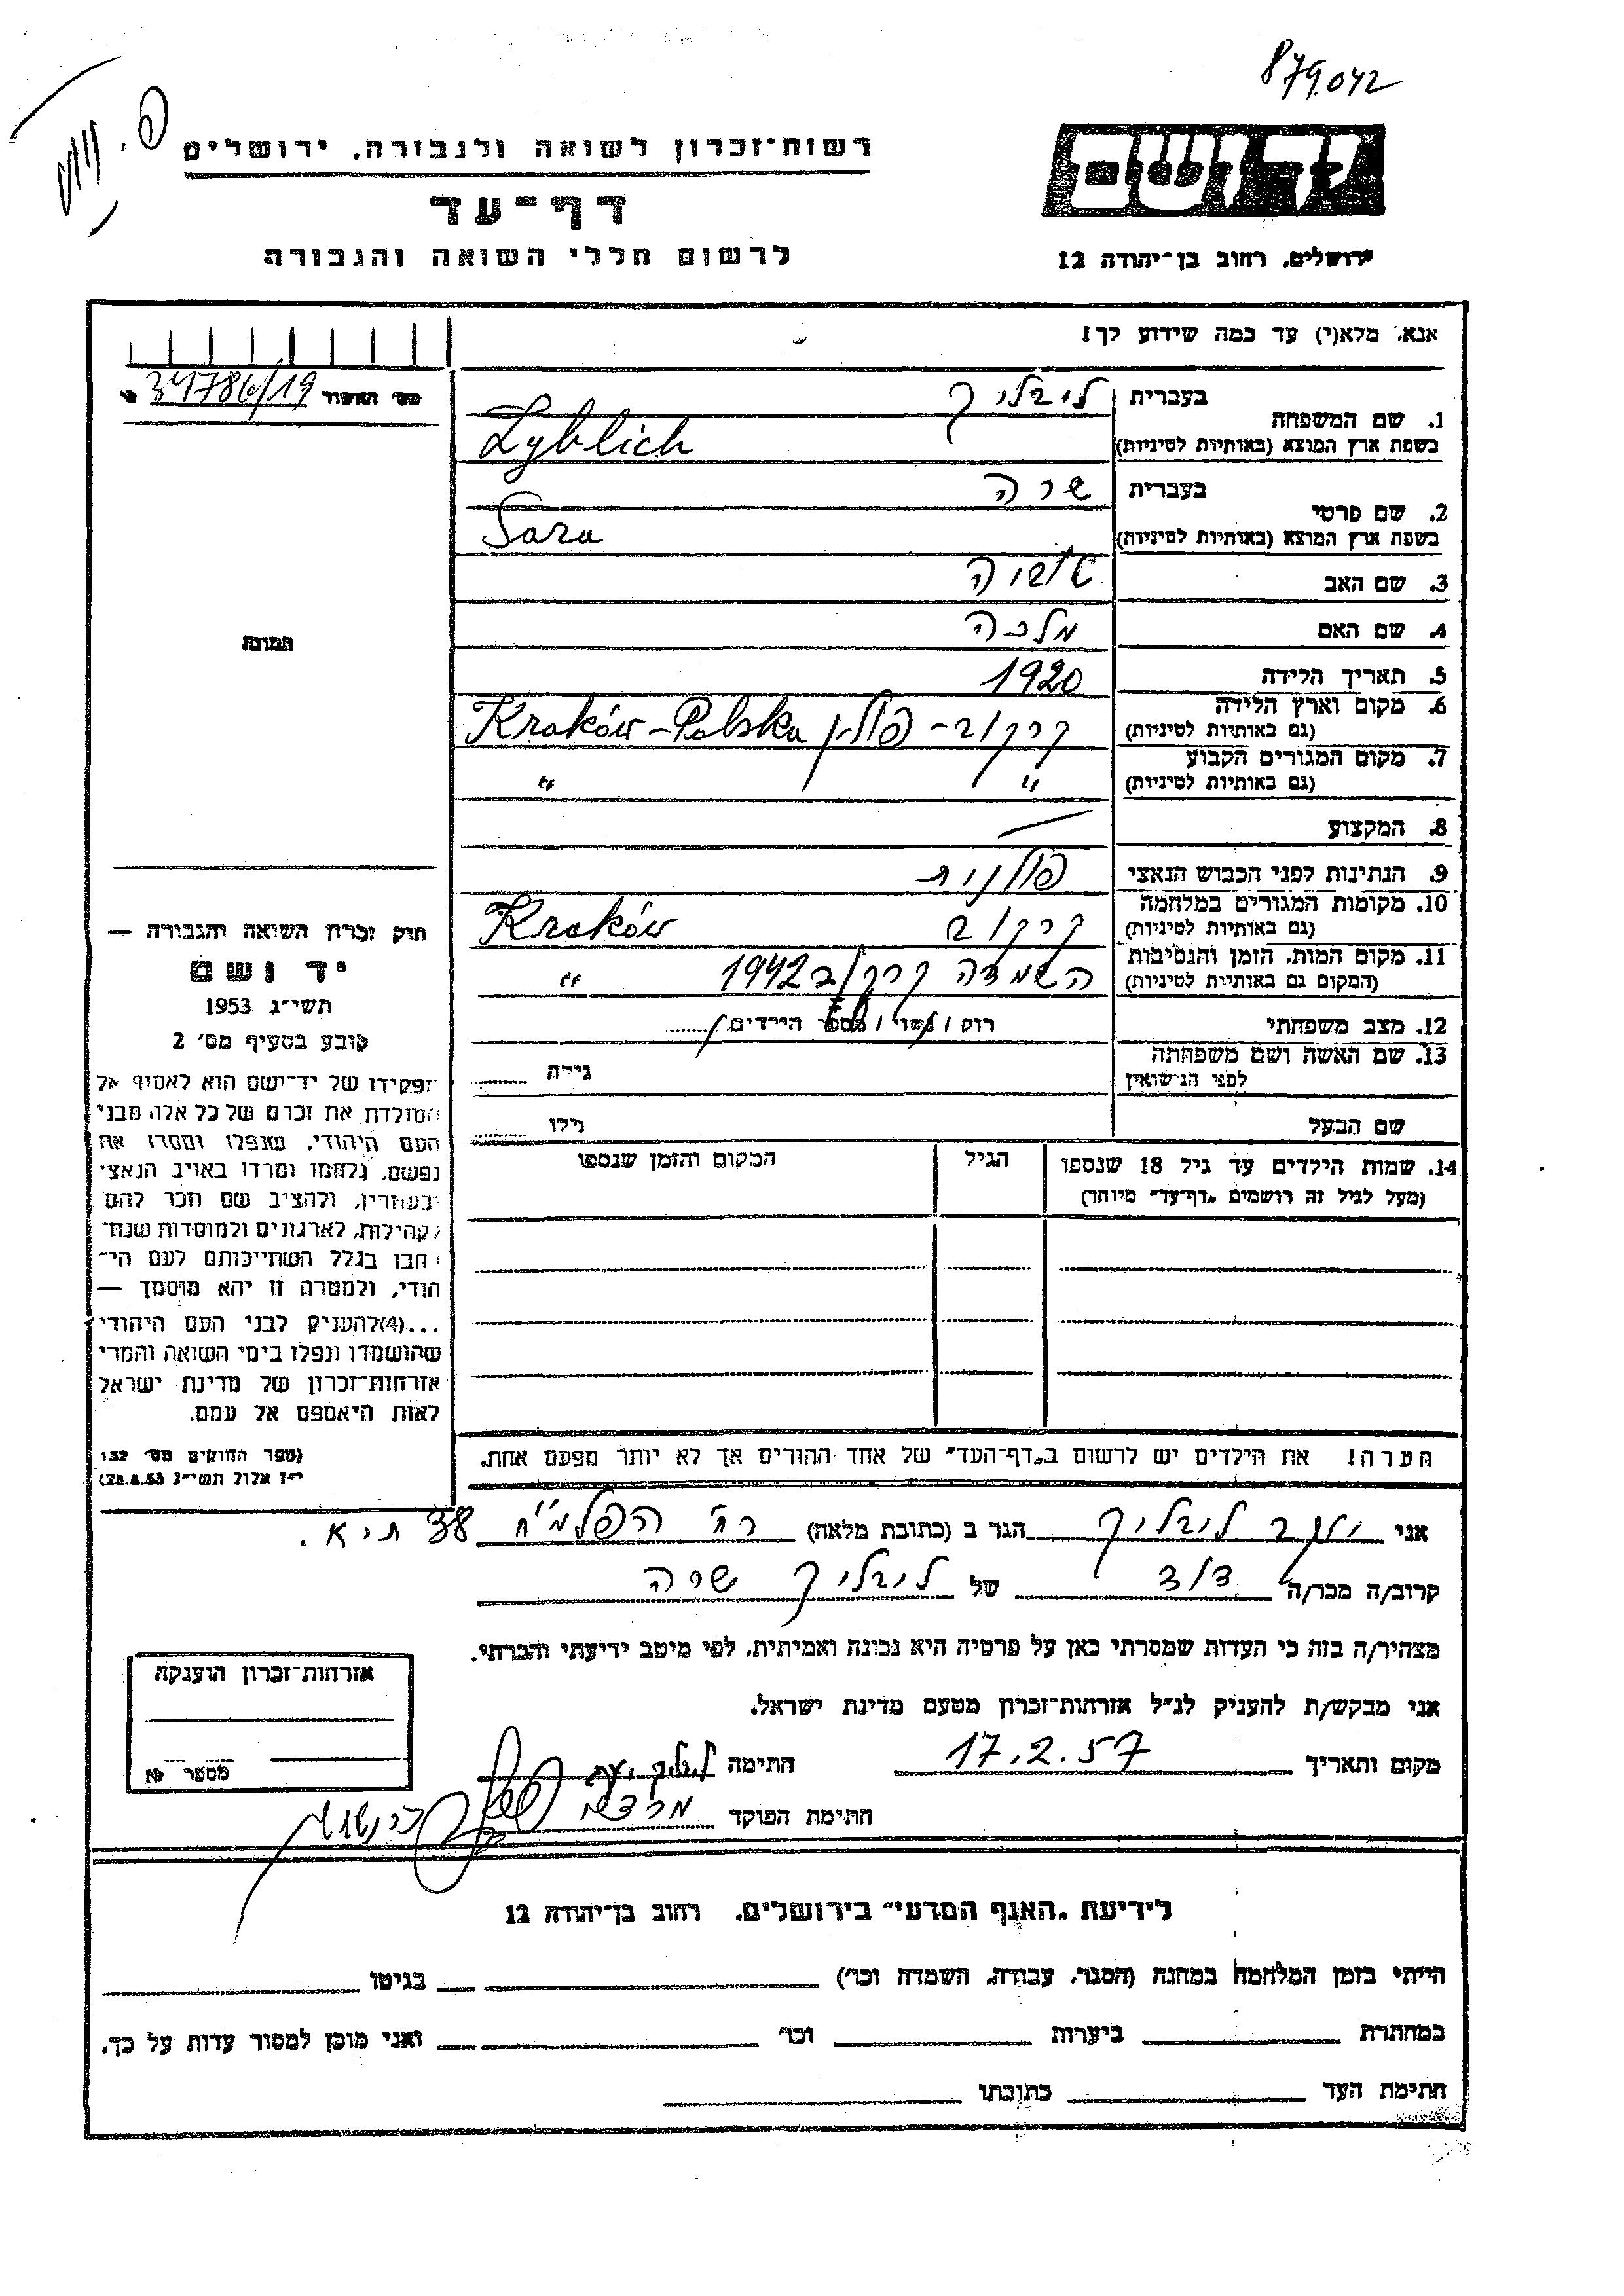 879.042
רשות־זכרון לשואה ולגבורה, ירושלים
דף־עד
לרשום חללי השואה והגבורה
יד ושם
ירושלים, רחוב בן־יהודה 12
אנא, מלא(י) עד כמה שידוע לך!
מס׳ האשור № 34786/19
1. שם המשפחה
בעברית ליבליך
בשפת ארץ המוצא (באותיות לטיניות) Lyblich
2. שם פרטי
בעברית שרה
בשפת ארץ המוצא (באותיות לטיניות) Sara
3. שם האב
4. שם האם מלכה
5. תאריך הלידה 1920
6. מקום וארץ הלידה
(גם באותיות לטיניות) קרקוב - פולין Kraków - Polska
7. מקום המגורים הקבוע
(גם באותיות לטיניות) " "
8. המקצוע —
9. הנתינות לפני הכבוש הנאצי פולנית
10. מקומות המגורים במלחמה
(גם באותיות לטיניות) קרקוב Kraków
11. מקום המות, הזמן והנסיבות
(המקום גם באותיות לטיניות) השמדה קרקוב 1942 "
12. מצב משפחתי רווק / נשוי / מספר הילדים
13. שם האשה ושם משפחתה
לפני הנישואין
גילה
שם הבעל גילו
14. שמות הילדים עד גיל 18 שנספו
(מעל לגיל זה רושמים "דף־עד" מיוחד)
הגיל
המקום והזמן שנספו
הערה! את הילדים יש לרשום ב"דף־העד" של אחד ההורים אך לא יותר מפעם אחת.
תמונה
חוק זכרון השואה והגבורה —
יד ושם
תשי״ג 1953
קובע בסעיף מס׳ 2
תפקידו של יד־ושם הוא לאסוף אל
המולדת את זכרם של כל אלה מבני
העם היהודי, שנפלו ומסרו את
נפשם, נלחמו ומרדו באויב הנאצי
ובעוזריו, ולהציב שם וזכר להם
לקהילות, לארגונים ולמוסדות שנח־
רבו בגלל השתייכותם לעם הי־
הודי, ולמטרה זו יהא מוסמך —
...(4) להעניק לבני העם היהודי
שהושמדו ונפלו בימי השואה והמרי
אזרחות־זכרון של מדינת ישראל
לאות היאספם אל עמם.
(ספר החוקים מס׳ 132
י״ז אלול תשי״ג 28.8.53)
אני יעקב ליבליך הגר ב (כתובת מלאה) רח׳ הפלמ״ח 38 ת״א.
קרוב/ה מכר/ה דוד של ליבליך שרה
מצהיר/ה בזה כי העדות שמסרתי כאן על פרטיה היא נכונה ואמיתית, לפי מיטב ידיעתי והכרתי.
אני מבקש/ת להעניק לנ״ל אזרחות־זכרון מטעם מדינת ישראל.
מקום ותאריך 17.2.57 חתימה ליבליך יעקב
חתימת הפוקד
אזרחות־זכרון הוענקה
מספר №
לידיעת "האגף המדעי" בירושלים, רחוב בן־יהודה 12
הייתי בזמן המלחמה במחנה (הסגר, עבודה, השמדה וכו׳) בגיטו
במחתרת ביערות וכו׳ ואני מוכן למסור עדות על כך.
חתימת העד כתובתו